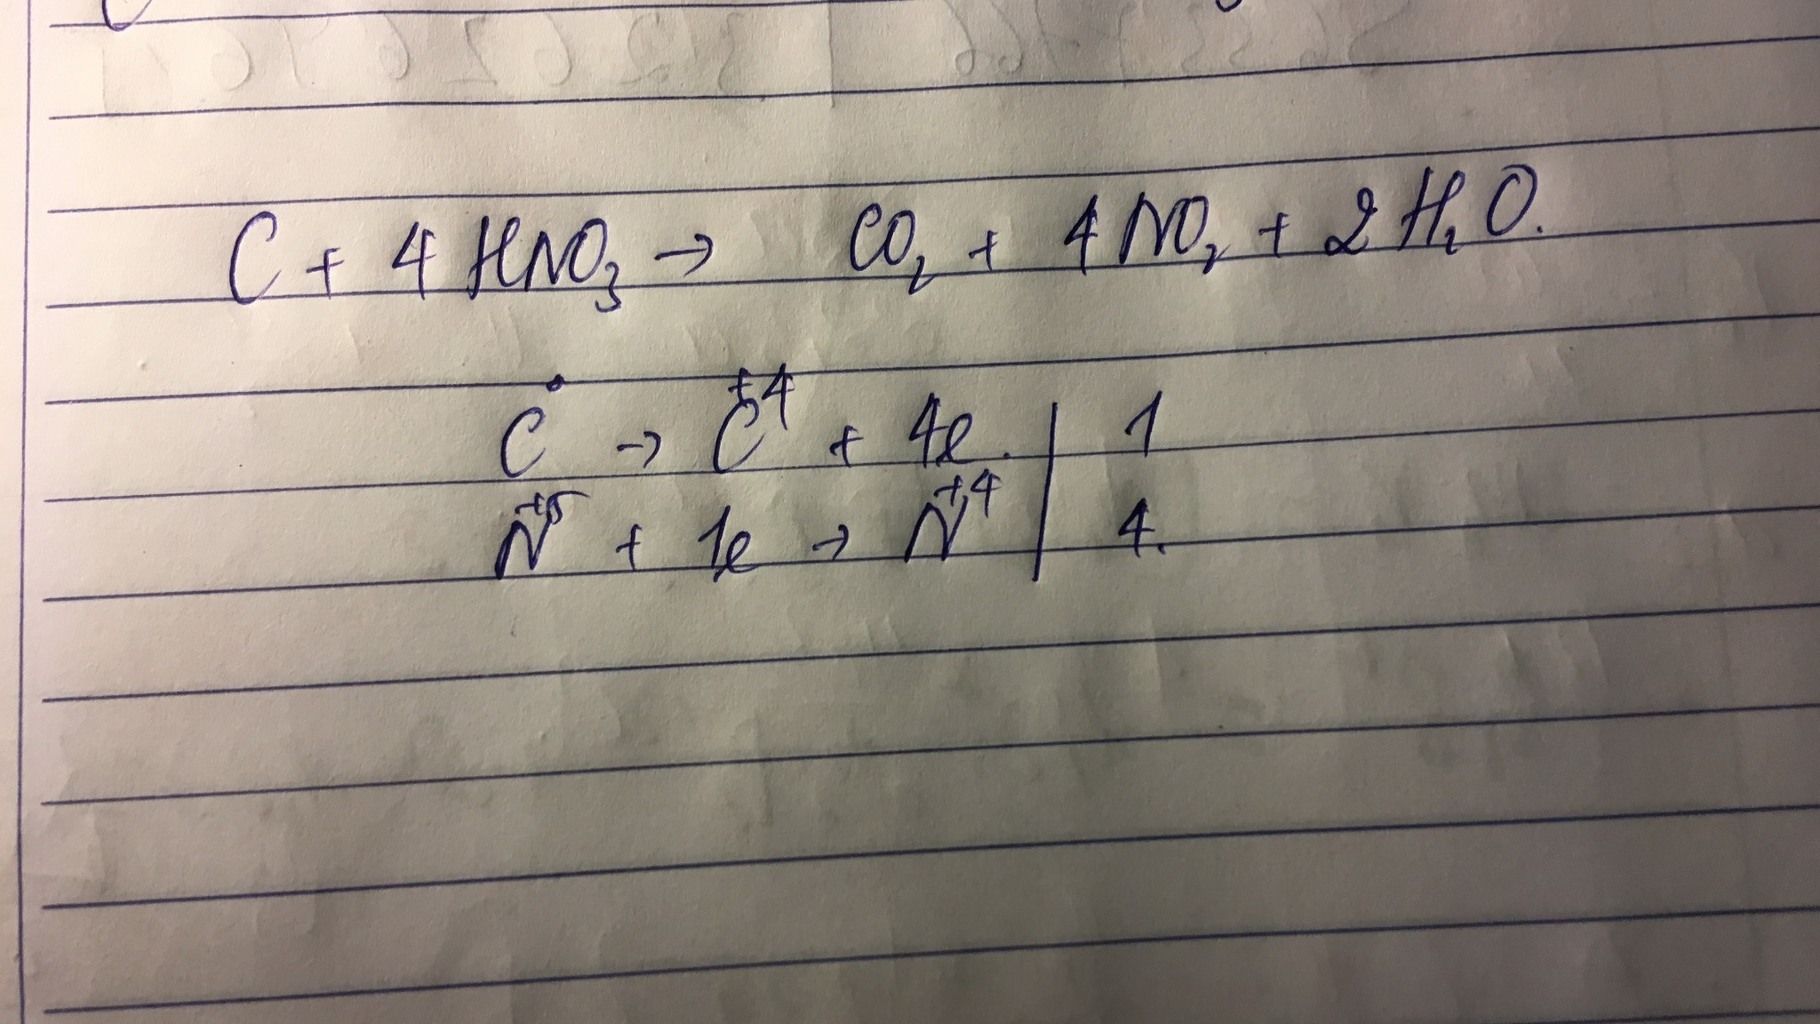 C + 4 HNO₃ → CO₂ + 4 NO₂ + 2 H₂O.
C⁰ → C⁺⁴ + 4e. | 1
N⁺⁵ + 1e → N⁺⁴ | 4.